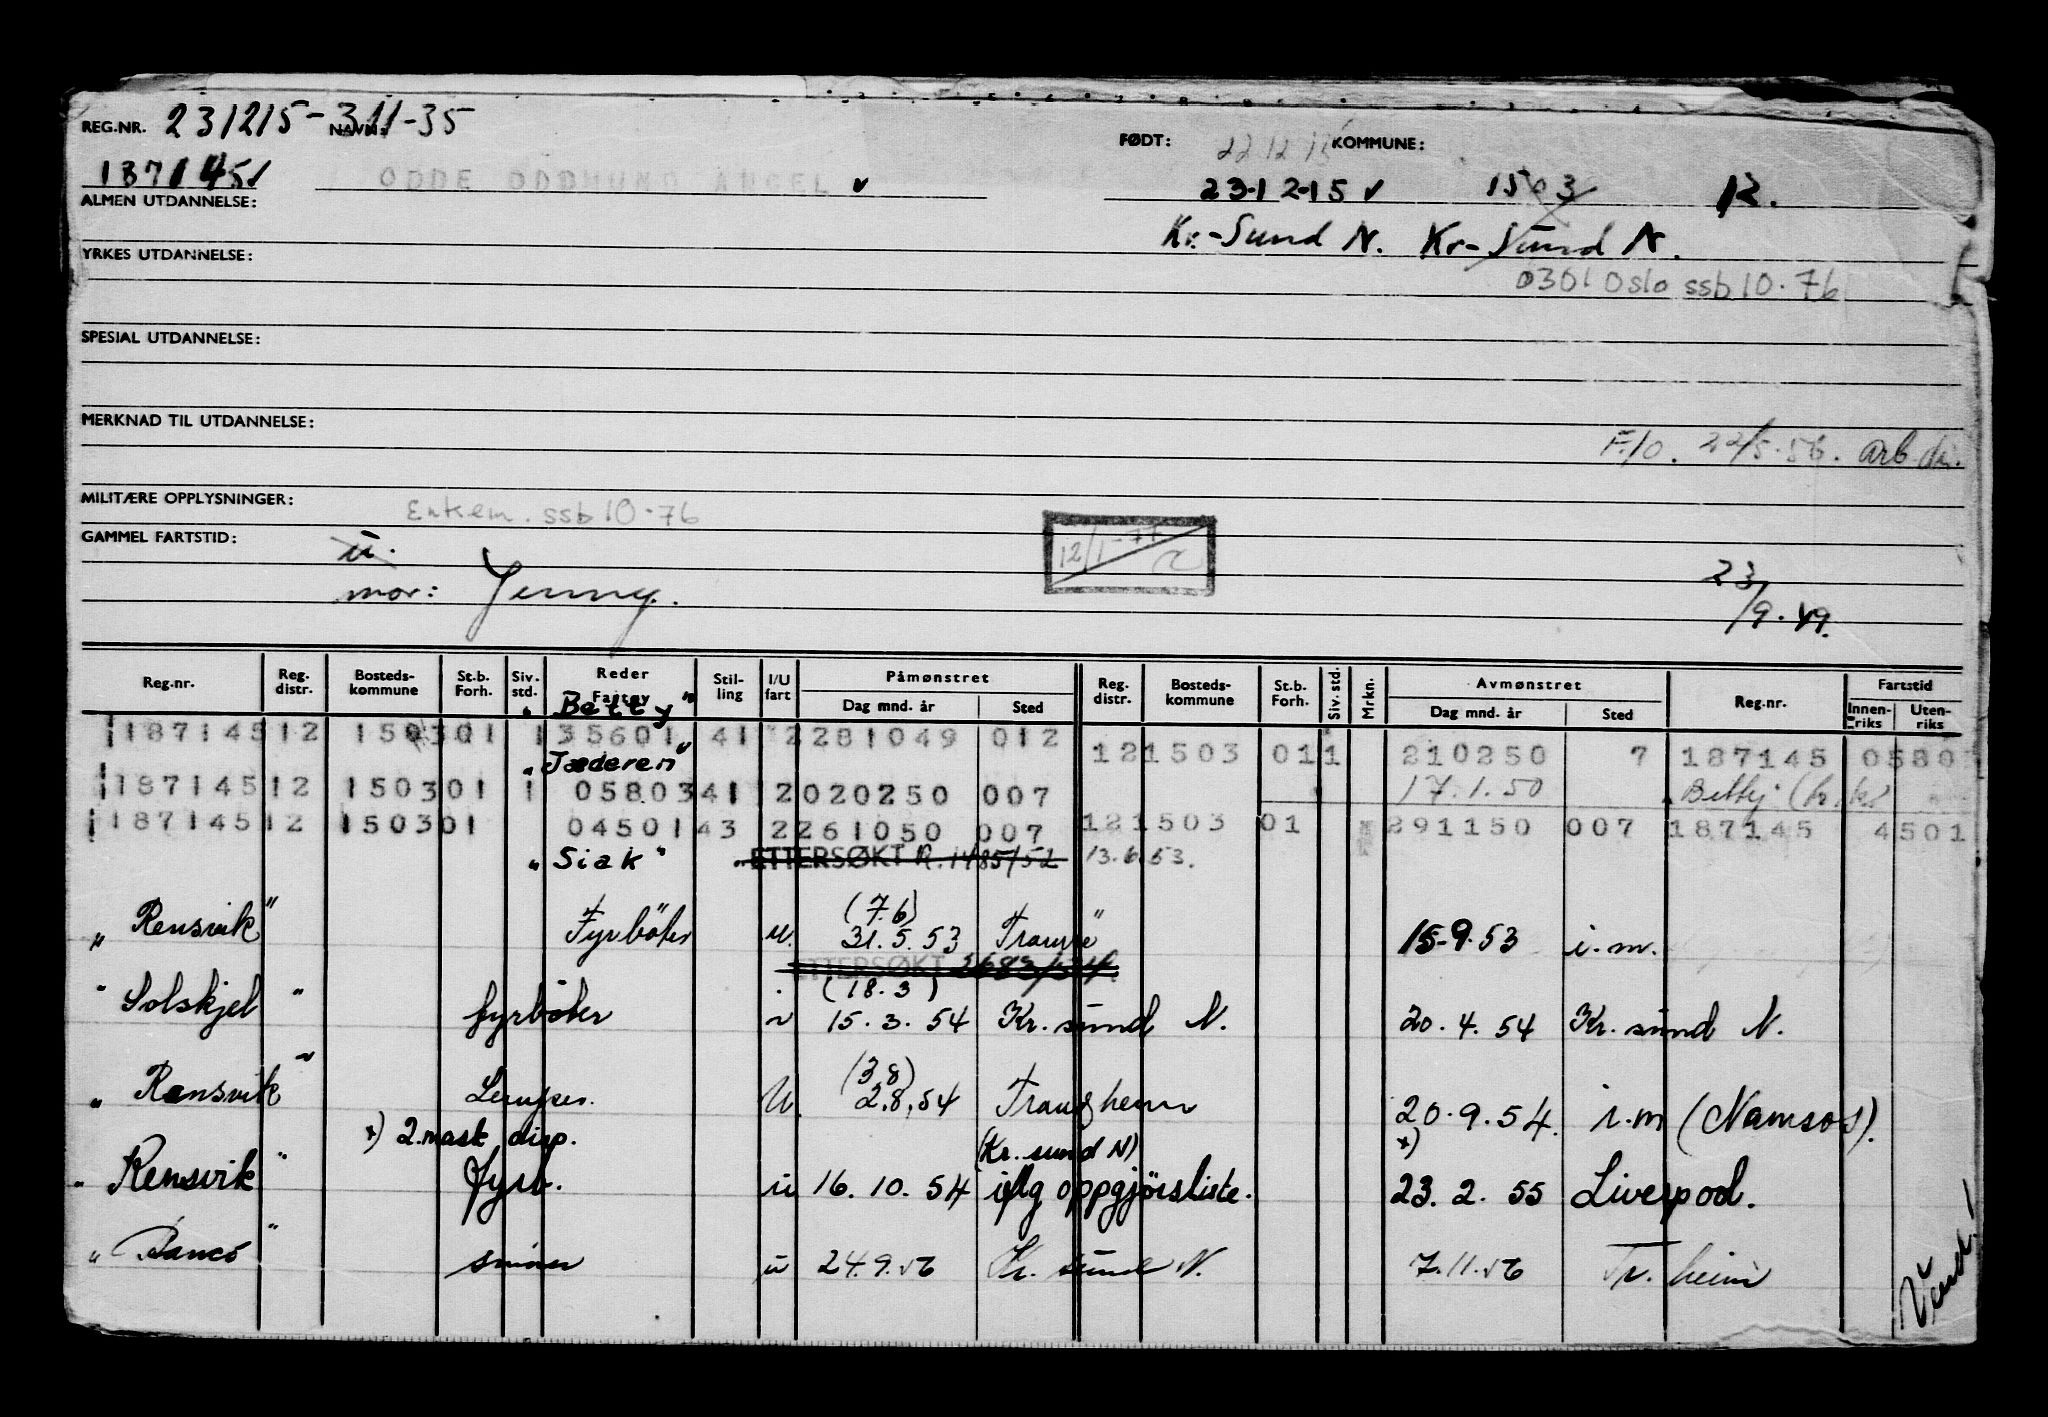 REG.NR. 231215-311-35 NAVN: FØDT: 22 12 15 KOMMUNE:
187145 ODDE ODDMUND ANGEL 23-12-15 1503 12.
ALMEN UTDANNELSE: Kr.-Sund N. Kr-Sund N.
YRKES UTDANNELSE: 0301 Oslo ssb 10-76
SPESIAL UTDANNELSE:
MERKNAD TIL UTDANNELSE: F/o. 22/5.56. arb.dir.
MILITÆRE OPPLYSNINGER: Enkem. ssb 10-76
GAMMEL FARTSTID: u. 12/1-77
mor: Jenny. 23/9.49.
Reg.nr. Reg. distr. Bosteds-kommune St.b. Forh. Siv. std. Reder Fartøy Stil-ling I/U fart Påmønstret Dag mnd. år Sted Reg. distr. Bosteds-kommune St.b. Forh. Siv. std. Mrkn. Avmønstret Dag mnd. år Sted Reg.nr. Fartstid Innen-riks Uten-riks
"Betty"
187145 12 150301 1 35601 41 2 281049 012 121503 01 1 210250 7 187145 0580
"Jæderen"
187145 12 150301 1 05803 41 2 020250 007 17.1.50
187145 12 150301 04501 43 2 261050 007 121503 01 291150 007 187145 4501
"Siak" ETTERSØKT R.1485/52 13.6.53.
"Rensvik" Fyrböter u. (7.6) 31.5.53 15-9.53 i.m.
ETTERSØKT
"Solskjel" fyrböter u (18.3) 15.3.54 Kr.sund N. 20.4.54 Kr.sund N.
"Rensvik" Lemper. U (3.8) 2.8.54 Trondheim 20.9.54. i.m (Namsos).
x) 2.mask disp. (Kr.sund N) x)
"Rensvik" fyrb. u 16.10.54 iflg oppgjörsliste. 23.2.55 Liverpool.
"Banco" smörer u 24.9.56 Kr.sund N. 7.11.56 Tr.heim